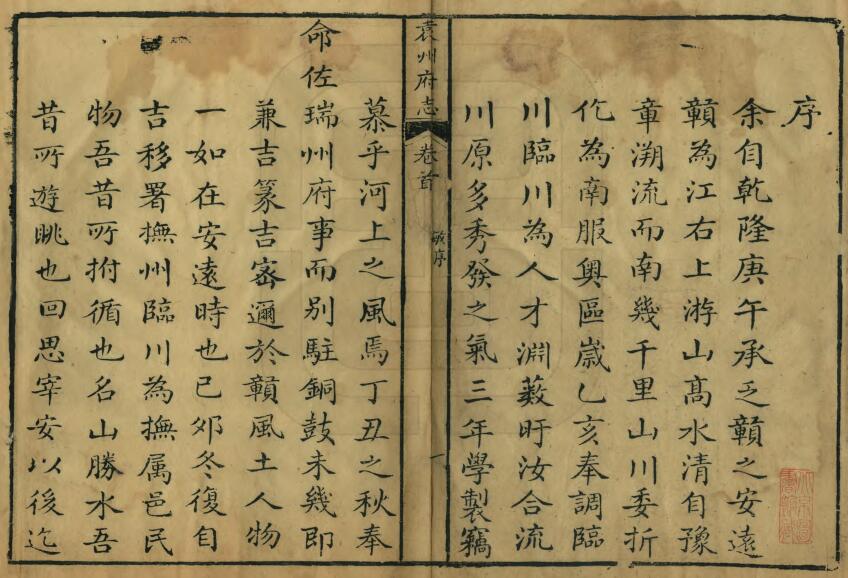 序
余自乾隆庚午承乏贛之安遠
贛為江右上游山高水清自豫
章溯流而南幾千里山川委折
化為南服奧區歲乙亥奉調臨
川臨川為人才淵藪盱汝合流
川原多秀發之氣三年學製竊
袁州府志
卷首
序
一
慕乎河上之風焉丁丑之秋奉
命佐瑞州府事而別駐銅鼓未幾即
兼吉篆吉密邇於贛風土人物
一如在安遠時也己卯冬復自
吉移署撫州臨川為撫属邑民
物吾昔所拊循也名山勝水吾
昔所遊眺也回思宰安以後迄